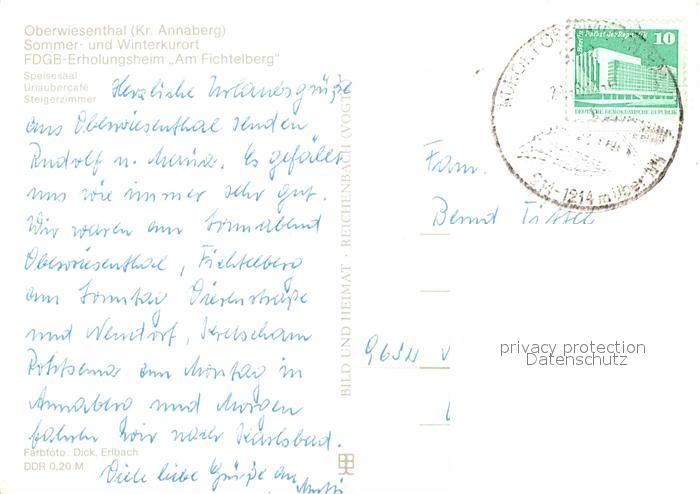 Oberwiesenthal (Kr. Annaberg)
Sommer- und Winterkurort
FDGB-Erholungsheim „Am Fichtelberg"
Speisesaal
Urlaubercafé
Steigerzimmer
Herzliche Urlaubsgrüße
aus Oberwiesenthal senden
Rudolf u. Maria. Es gefällt
uns wie immer sehr gut.
Wir waren am Sonnabend
Oberwiesenthal, Fichtelberg
am Sonntag
und Neudorf, Kretscham
Rothsema am Montag in
Annaberg und Morgen
fahren wir nach Karlsbad.
Viele liebe Grüße an
Farbfoto: Dick, Erlbach
DDR 0,20 M
BILD UND HEIMAT · REICHENBACH (VOGT
Berlin, Palast der Republik
10
DEUTSCHE DEMOKRATISCHE REPUBLIK
KURORT
914-1214 m über NN
Fam.
Bernd
privacy protection
Datenschutz